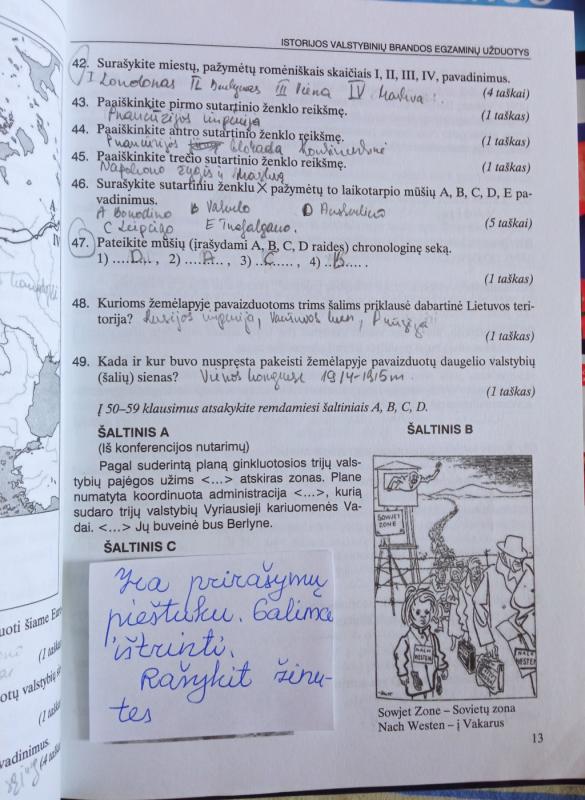 ISTORIJOS VALSTYBINIŲ BRANDOS EGZAMINŲ UŽDUOTYS
42. Surašykite miestų, pažymėtų romėniškais skaičiais I, II, III, IV, pavadinimus.
I Londonas II Berlynas III Viena IV Maskva. (4 taškai)
43. Paaiškinkite pirmo sutartinio ženklo reikšmę.
Prancūzijos imperija (1 taškas)
44. Paaiškinkite antro sutartinio ženklo reikšmę.
Prancūzijos blokada kontinentinė (1 taškas)
45. Paaiškinkite trečio sutartinio ženklo reikšmę.
Napoleono žygis į Maskvą (1 taškas)
46. Surašykite sutartiniu ženklu X pažymėtų to laikotarpio mūšių A, B, C, D, E pa-
vadinimus.
A Borodino B D
C Leipcigo E Trafalgaro. (5 taškai)
47. Pateikite mūšių (įrašydami A, B, C, D raides) chronologinę seką.
1) ....D.., 2) ....A..., 3) ..C......, 4) ..B......
(1 taškas)
48. Kurioms žemėlapyje pavaizduotoms trims šalims priklausė dabartinė Lietuvos teri-
torija? Rusijos imperija, Prūsija
(1 taškas)
49. Kada ir kur buvo nuspręsta pakeisti žemėlapyje pavaizduotų daugelio valstybių
(šalių) sienas? Vienos kongrese
(1 taškas)
Į 50–59 klausimus atsakykite remdamiesi šaltiniais A, B, C, D.
ŠALTINIS A
(Iš konferencijos nutarimų)
Pagal suderintą planą ginkluotosios trijų vals-
tybių pajėgos užims <...> atskiras zonas. Plane
numatyta koordinuota administracija <...>, kurią
sudaro trijų valstybių Vyriausieji kariuomenės Va-
dai. <...> Jų buveinė bus Berlyne.
ŠALTINIS C
Yra prirašymų
pieštuku. Galima
ištrinti.
Rašykit žinu-
tes
ŠALTINIS B
SOWJET
ZONE
NACH
WESTEN
NACH
WESTEN
Sowjet Zone – Sovietų zona
Nach Westen – į Vakarus
13
uoti šiame Eur
(1 taška
otų valstybių
(1 tašk
vadinimus.
(4 tašk